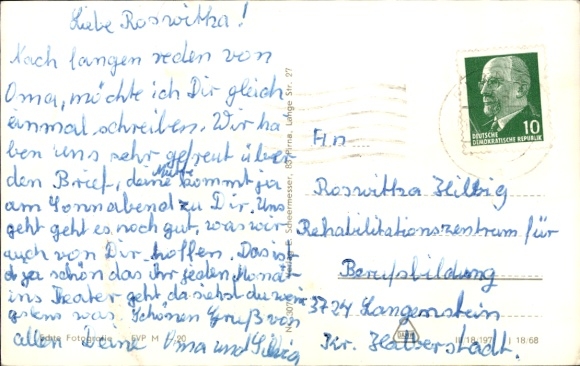 Liebe Roswitha!
Nach langen reden von
Oma, möchte ich Dir gleich
einmal schreiben. Wir ha
ben uns sehr gefreut über
den Brief, deine Mutti kommt ja
am Sonnabend zu Dir. Uns
geht geht es noch gut, was wir
auch von Dir hoffen. Das ist
ja schön das ihr jeden Mona
ins Theater geht, da siehst du wenig
stens was. Schönen Gruß von
allen Deine Oma und Silvia
DEUTSCHE
DEMOKRATISCHE REPUBLIK
10
An
Roswitha Helbig
Rehabilitationszentrum für
Berufsbildung
3724 Langenstein
Kr. Halberstadt.
Scheermesser, 83 Pirna, Lange Str. 27
Echte Fotografie
III 18/197
I 18 68